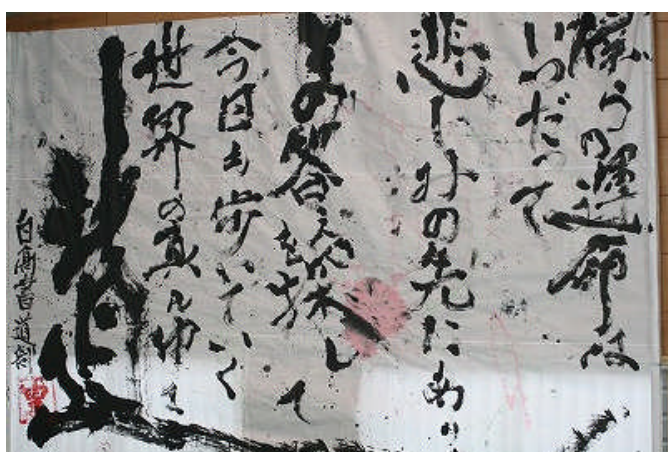 僕らの運命は
いつだって
悲しみの先にあり
その答えを探して
今日も歩いていく
世界の真ん中を
道
白高書道部